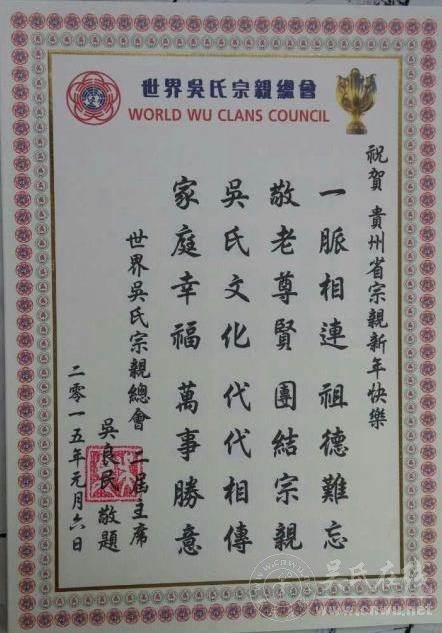 世界吳氏宗親總會
WORLD WU CLANS COUNCIL
祝賀 貴州省宗親新年快樂
一脈相連 祖德難忘
敬老尊賢 團結宗親
吳氏文化 代代相傳
家庭幸福 萬事勝意
世界吳氏宗親總會 二屆主席
吳良民 敬題
二零一五年元月六日
吴氏在线
www.cnwu.net